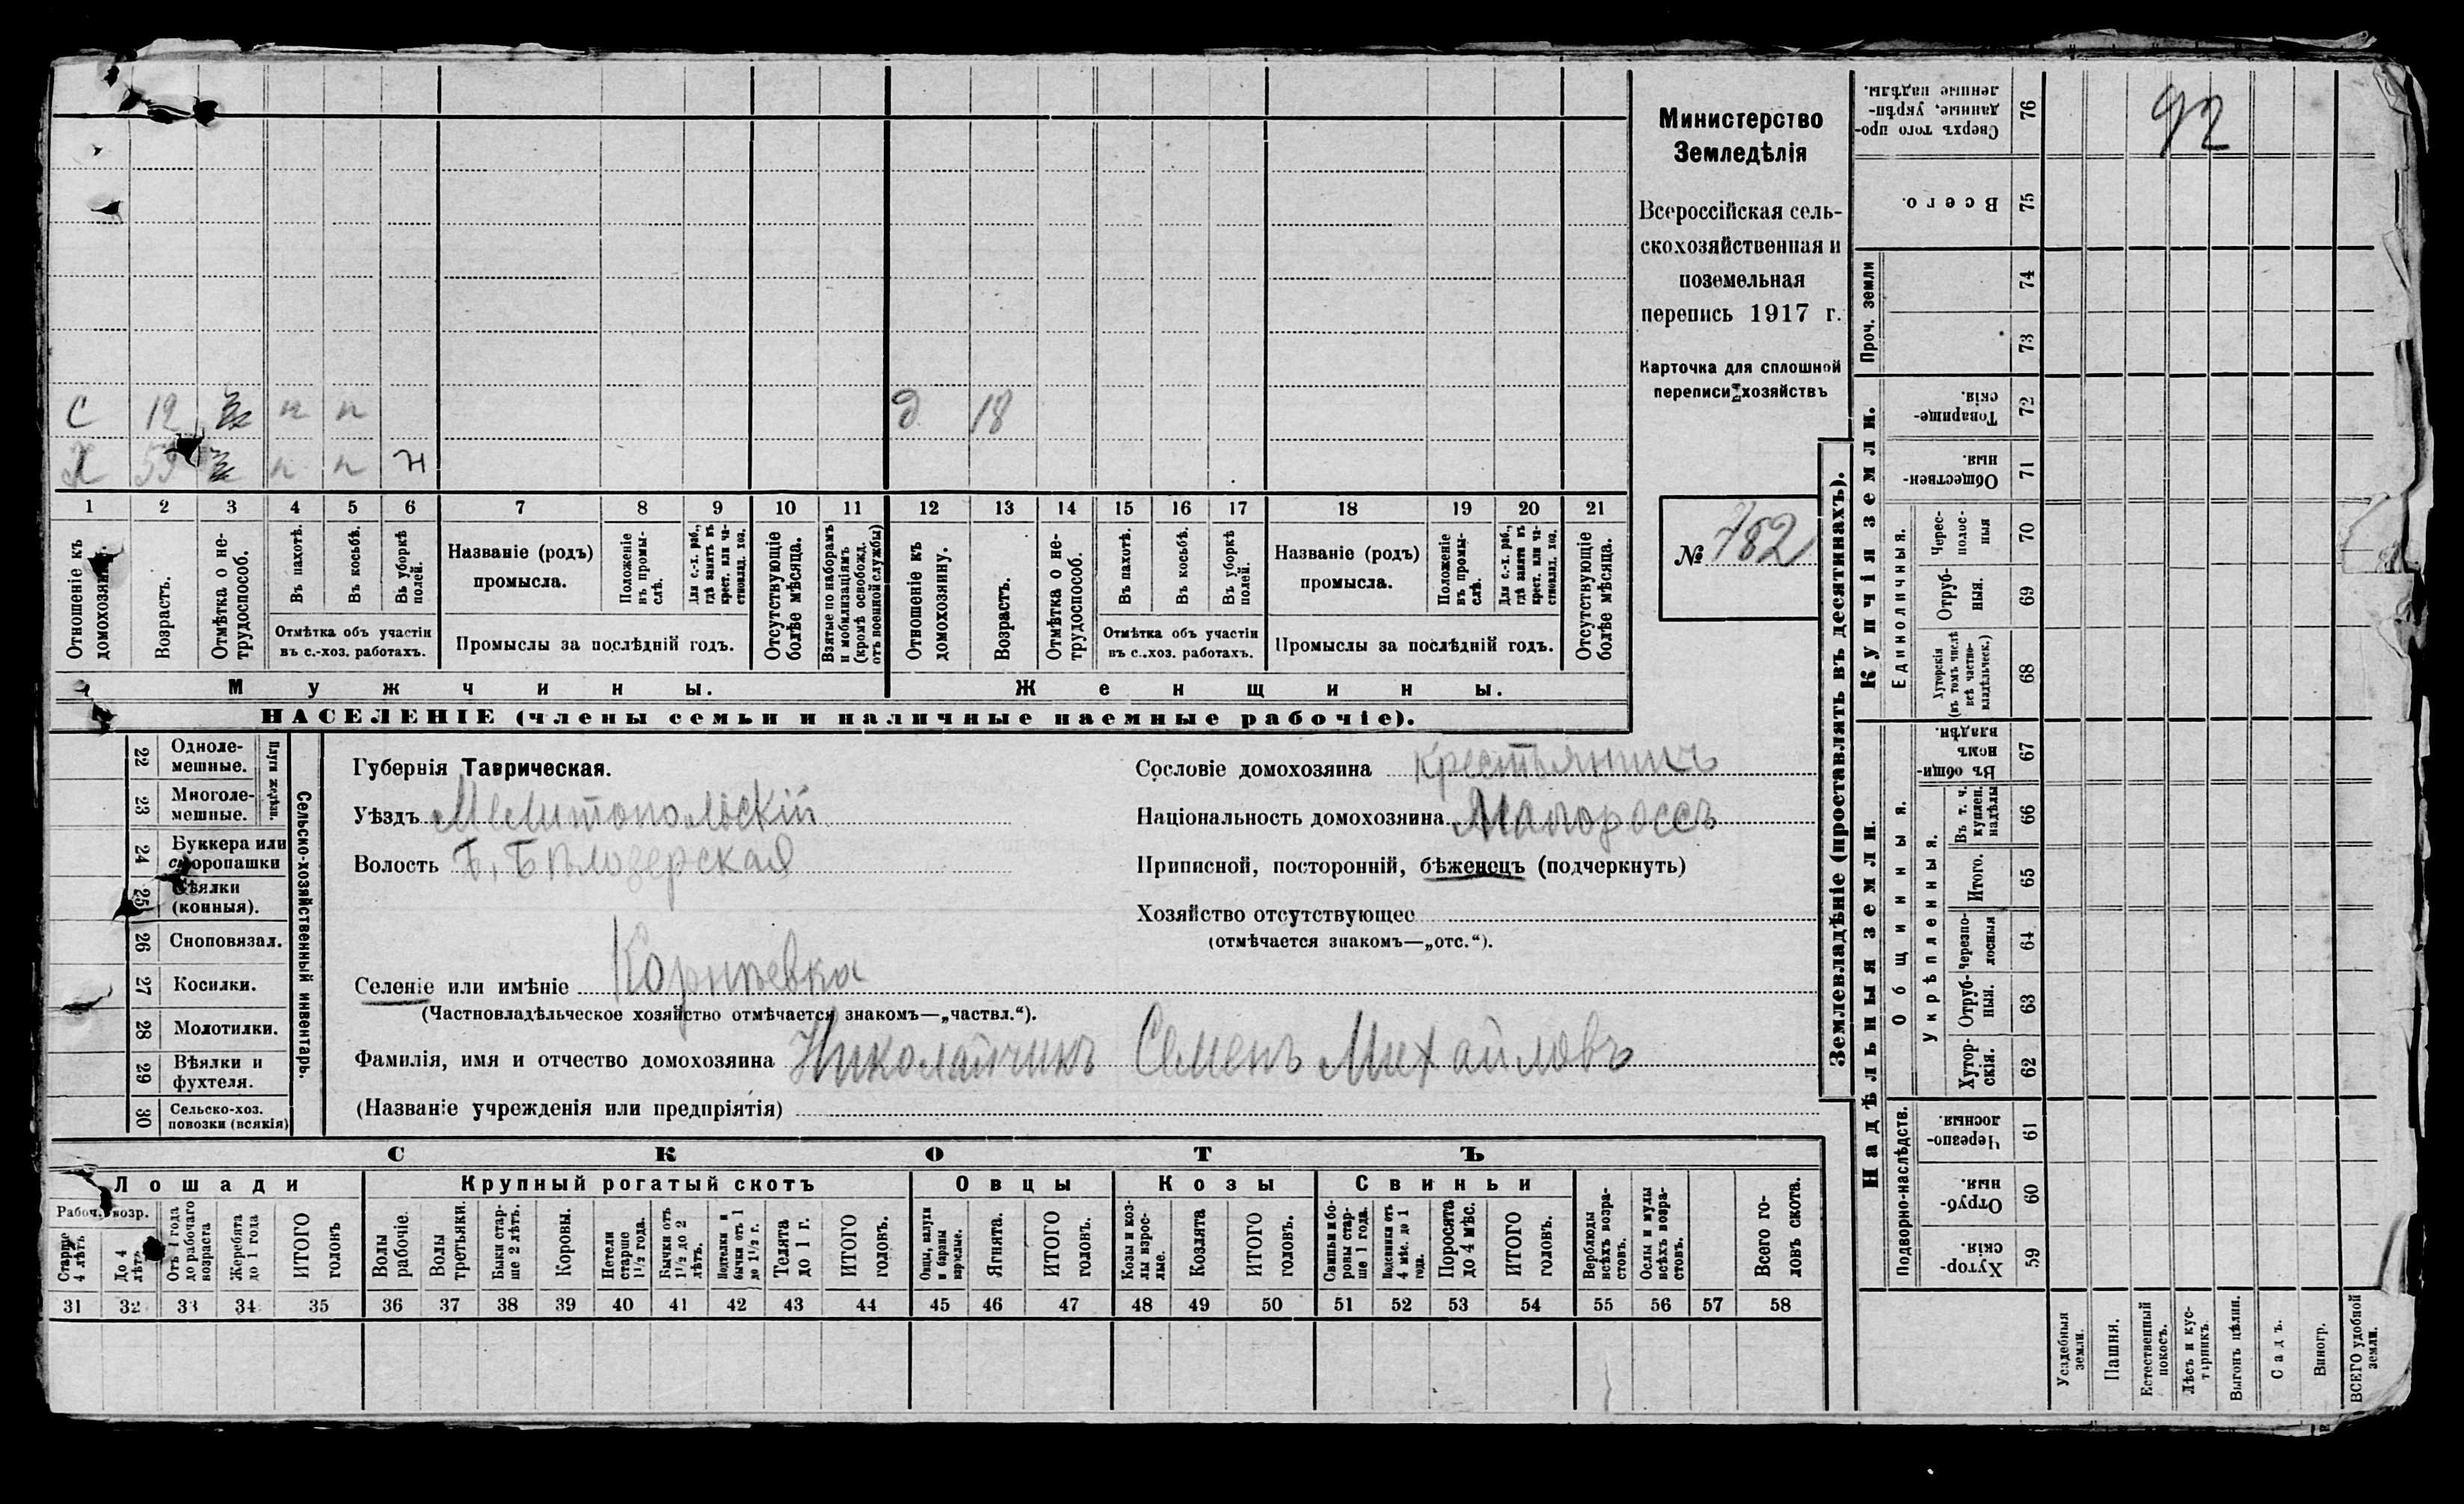 92
Министерство
Земледѣлія
Всероссійская сель-
скохозяйственная и
поземельная
перепись 1917 г.
Карточка для сплошной
переписи хозяйствъ
№ 782
С 12 п п
Х п п н
д 18
1 2 3 4 5 6 7 8 9 10 11 12 13 14 15 16 17 18 19 20 21
Отношеніе къ домохозяину.
Возрастъ.
Отмѣтка о не-
трудоспособ.
Въ пахотѣ.
Въ косьбѣ.
Въ уборкѣ
полей.
Отмѣтка объ участіи
въ с.-хоз. работахъ.
Названіе (родъ)
промысла.
Положеніе
въ промы-
слѣ.
Для с.-х. раб.,
гдѣ занятъ въ
крест. или ча-
стновлад. хоз.
Промыслы за послѣдній годъ.
Отсутствующіе
болѣе мѣсяца.
Взятые по наборамъ
и мобилизаціямъ
(кромѣ освобожд.
отъ военной службы)
Отношеніе къ
домохозяину.
Возрастъ.
Отмѣтка о не-
трудоспособ.
Въ пахотѣ.
Въ косьбѣ.
Въ уборкѣ
полей.
Отмѣтка объ участіи
въ с.-хоз. работахъ.
Названіе (родъ)
промысла.
Положеніе
въ промы-
слѣ.
Для с.-х. раб.,
гдѣ занята въ
крест. или ча-
стновлад. хоз.
Промыслы за послѣдній годъ.
Отсутствующіе
болѣе мѣсяца.
Мужчины.
Женщины.
НАСЕЛЕНІЕ (члены семьи и наличные наемные рабочіе).
22 Одноле-
мешные.
23 Многоле-
мешные.
24 Буккера или
скоропашки
25 Сѣялки
(конныя).
26 Сноповязал.
27 Косилки.
28 Молотилки.
29 Вѣялки и
фухтеля.
30 Сельско-хоз.
повозки (всякія)
Сельско-хозяйственный инвентарь.
Губернія Таврическая.
Уѣздъ Мелитопольскій
Волость Б. Бѣлозерская
Сословіе домохозяина крестьянинъ
Національность домохозяина Малороссъ
Приписной, посторонній, бѣженецъ (подчеркнуть)
Хозяйство отсутствующее
(отмѣчается знакомъ—„отс.“).
Селеніе или имѣніе Корнѣевка
(Частновладѣльческое хозяйство отмѣчается знакомъ—„частвл.“).
Фамилія, имя и отчество домохозяина Николайчикъ Семенъ Михайловъ
(Названіе учрежденія или предпріятія)
СКОТЪ
Лошади
Крупный рогатый скотъ
Овцы
Козы
Свиньи
Рабоч. возр.
Старше
4 лѣтъ
До 4
лѣтъ
Отъ 1 года
до рабочаго
возраста
Жеребята
до 1 года
ИТОГО
головъ
Волы
рабочіе.
Волы
третьяки.
Быки стар-
ше 2 лѣтъ.
Коровы.
Нетели
старше
1½ года.
Бычки отъ
1½ до 2
лѣтъ.
Подтелки и
бычки отъ 1
до 1½ г.
Телята
до 1 г.
ИТОГО
головъ.
Овцы, валухи
и бараны
взрослые.
Ягнята.
ИТОГО
головъ.
Козы и коз-
лы взрос-
лые.
Козлята
ИТОГО
головъ.
Свиньи и бо-
ровы стар-
ше 1 года.
Подсвинки отъ
4 мѣс. до 1
года.
Поросята
до 4 мѣс.
ИТОГО
головъ.
Верблюды
всѣхъ возра-
стовъ.
Ослы и мулы
всѣхъ возра-
стовъ.
Всего го-
ловъ скота.
31 32 33 34 35 36 37 38 39 40 41 42 43 44 45 46 47 48 49 50 51 52 53 54 55 56 57 58
Землевладѣніе (проставлять въ десятинахъ).
Купчія земли.
Надѣльныя земли.
Проч. земли
Единоличныя.
Общинныя.
Укрѣпленныя.
Подворно-наслѣдств.
Сверхъ того про-
данные, укрѣп-
ленные надѣлы. 76
Всего. 75
74
73
Товарище-
скія. 72
Обществен-
ныя. 71
Черес-
полос-
ныя 70
Отруб-
ныя. 69
Хуторскія
(въ томъ числѣ
всѣ частно-
владѣльческ.) 68
Въ общи-
номъ
владѣн. 67
Въ т. ч.
куплен.
надѣлы 66
Итого. 65
Черезпо-
лосныя 64
Отруб-
ныя. 63
Хутор-
скія. 62
Черезпо-
лосныя. 61
Отруб-
ныя. 60
Хутор-
скія. 59
Усадебныя
земли.
Пашня.
Естественный
покосъ.
Лѣсъ и кус-
тарникъ
Выгонъ цѣлин.
Садъ.
Виногр.
ВСЕГО удобной
земли.